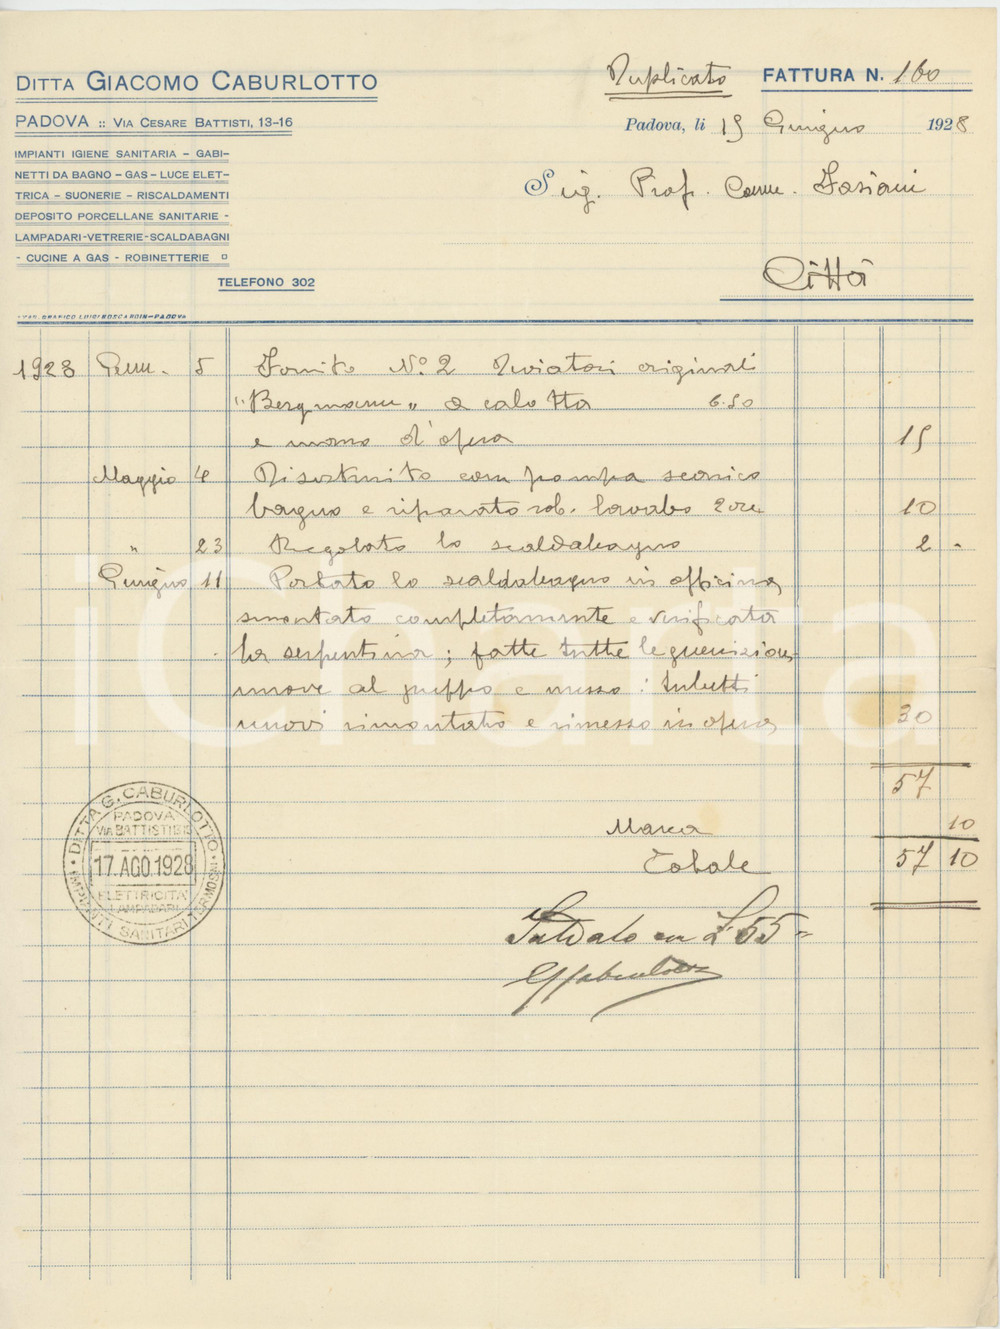 DITTA GIACOMO CABURLOTTO
Duplicato
FATTURA N. 160
PADOVA :: VIA CESARE BATTISTI, 13-16
Padova, li 15 Giugno 1928
IMPIANTI IGIENE SANITARIA - GABI-
NETTI DA BAGNO - GAS - LUCE ELET-
TRICA - SUONERIE - RISCALDAMENTI
DEPOSITO PORCELLANE SANITARIE -
LAMPADARI-VETRERIE-SCALDABAGNI
- CUCINE A GAS - ROBINETTERIE
Sig. Prof. Comm. Fasiani
Città
TELEFONO 302
1928 Genn. 5 Fornito N.º 2 Deviatori originali
"Bergmann" a calotta 6.50
e mano d'opera 15
Maggio 4 Disostruito con pompa scarico
bagno e riparato rob. lavabo 2 ore 10
" 23 Regolato lo scaldabagno 2 -
Giugno 11 Portato lo scaldabagno in officina
smontato completamente e verificata
la serpentina; fatte tutte le guernizioni
nuove al gruppo e messo i tubetti
nuovi rimontato e rimesso in opera 30
57
Marca 10
Totale 57 10
DITTA G. CABURLOTTO
PADOVA
VIA BATTISTI
17. AGO. 1928
ELETTRICITA'
LAMPADARI
IMPIANTI SANITARI TERMOSI
Saldato con £ 55=
GCaburlotto
iCharta